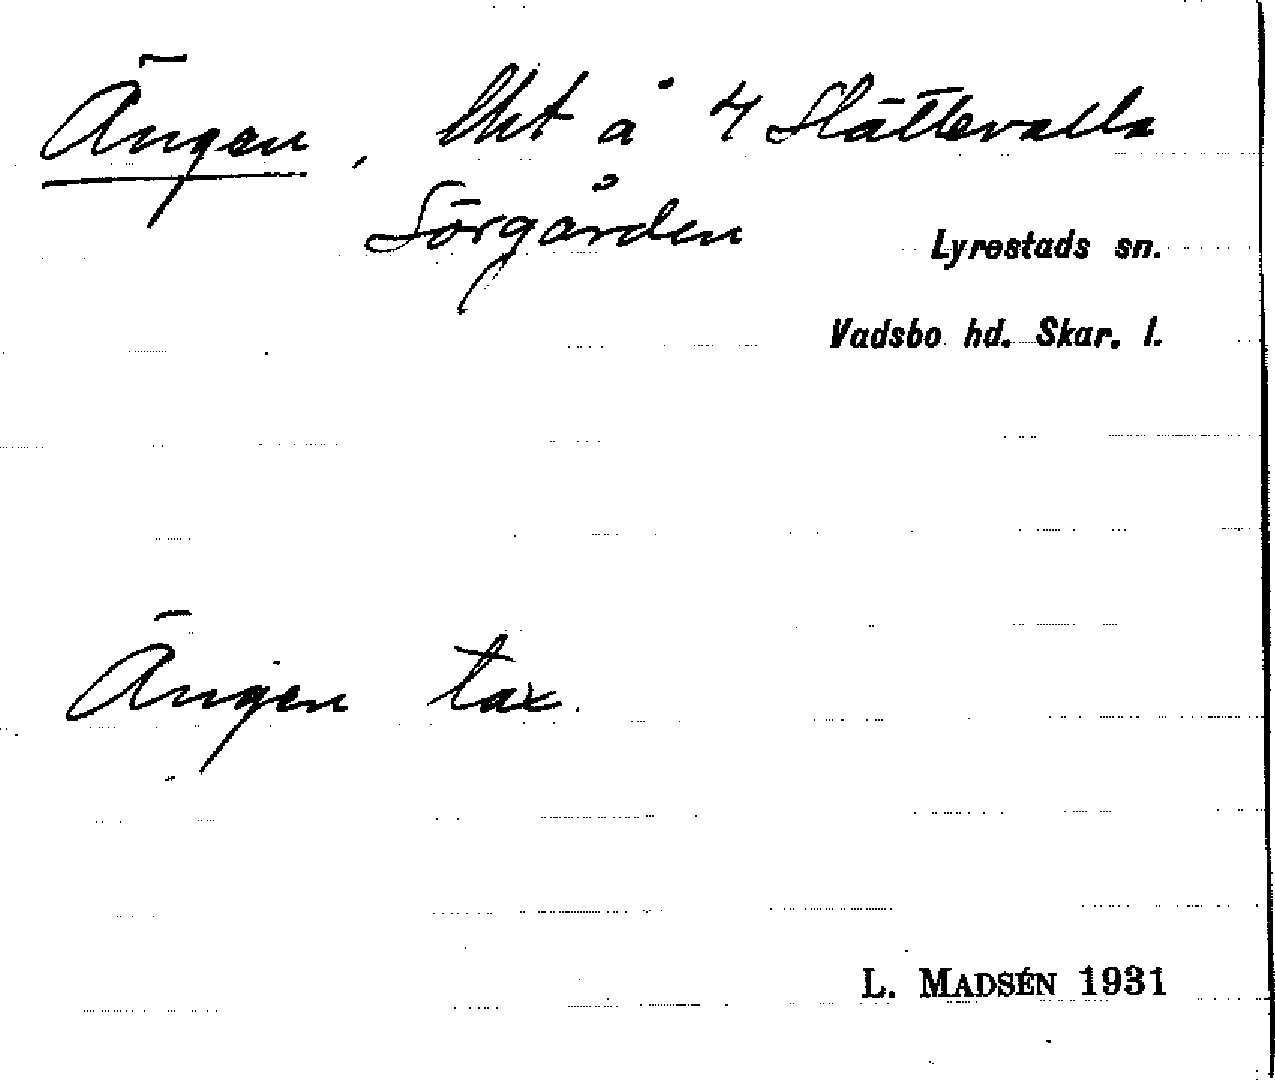 Ängen, lht å 4 Slättevalla
Sörgården
Lyrestads sn.
Vadsbo hd. Skar. l.
Ängen tax.
L. MADSÉN 1931